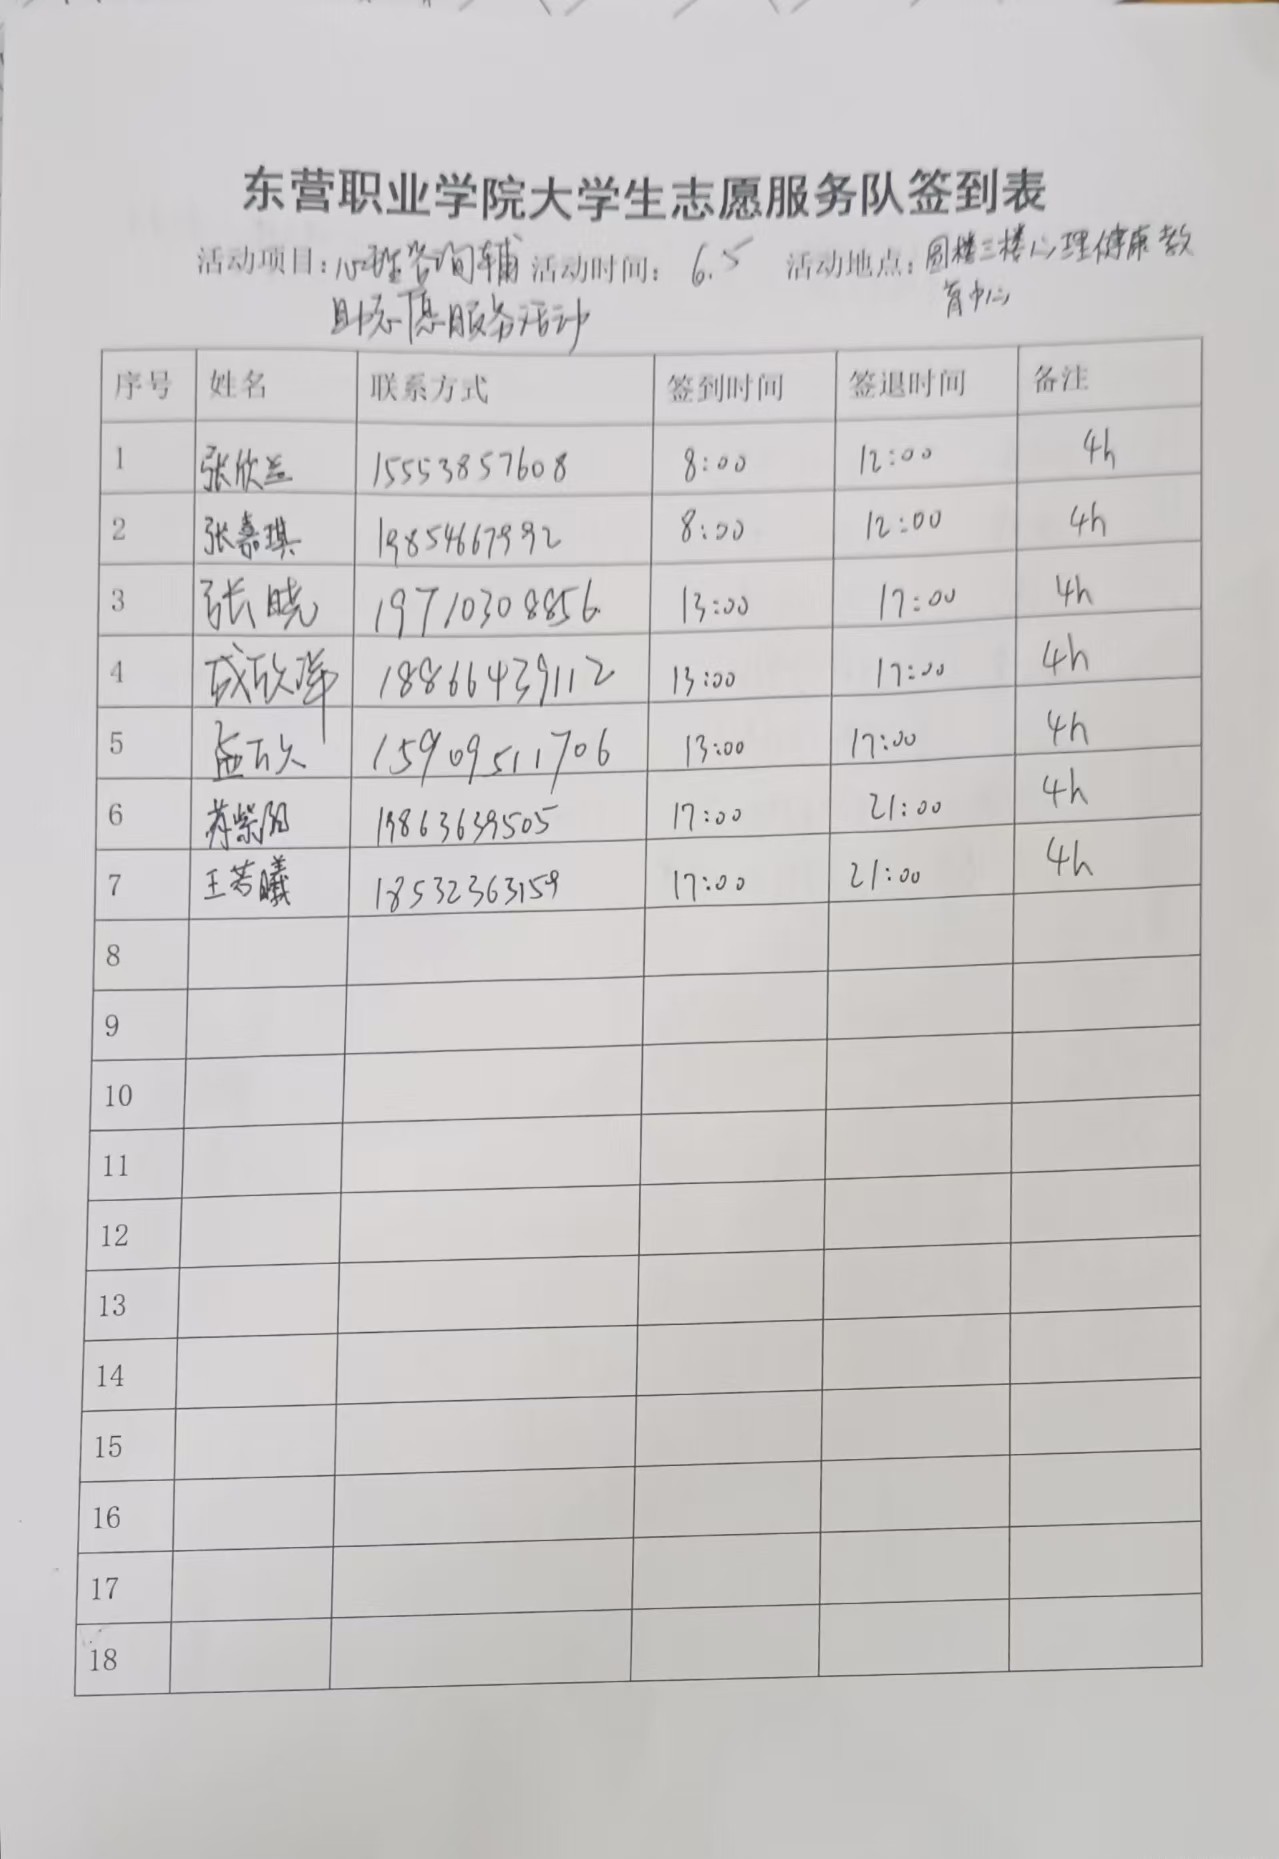 东营职业学院大学生志愿服务队签到表
活动项目：心理咨询辅 活动时间： 6.5 活动地点：圆楼三楼心理健康教
助志愿服务活动 育中心
序号 姓名 联系方式 签到时间 签退时间 备注
1 张欣兰 15553857608 8:00 12:00 4h
2 张嘉琪 19854667992 8:00 12:00 4h
3 张晓 19710308856 13:00 17:00 4h
4 18866439112 13:00 17:00 4h
5 孟欣 15909511706 13:00 17:00 4h
6 19863639505 17:00 21:00 4h
7 王若曦 18532363159 17:00 21:00 4h
8
9
10
11
12
13
14
15
16
17
18